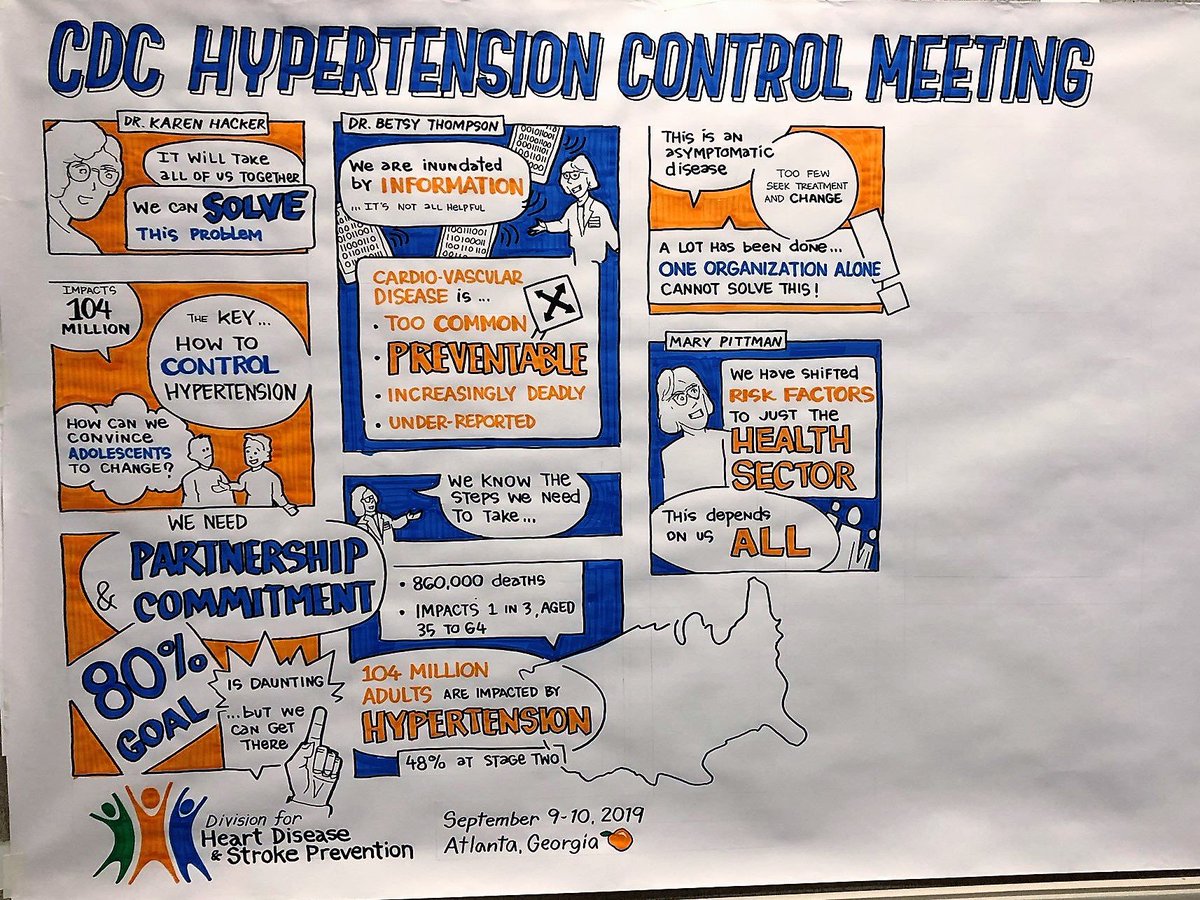 CDC HYPERTENSION CONTROL MEETING
DR. KAREN HACKER
IT WILL TAKE
ALL OF US TOGETHER
WE CAN SOLVE
THIS PROBLEM
IMPACTS
104
MILLION
THE KEY...
HOW TO
CONTROL
HYPERTENSION
HOW CAN WE
CONVINCE
ADOLESCENTS
TO CHANGE?
WE NEED
PARTNERSHIP
& COMMITMENT
80%
GOAL
IS DAUNTING
...BUT WE
CAN GET
THERE
DR. BETSY THOMPSON
We are inundated
by INFORMATION
...IT'S NOT ALL HELPFUL
CARDIO-VASCULAR
DISEASE is...
• TOO COMMON
• PREVENTABLE
• INCREASINGLY DEADLY
• UNDER-REPORTED
WE KNOW THE
STEPS WE NEED
TO TAKE...
• 860,000 DEATHS
• IMPACTS 1 IN 3, AGED
35 TO 64
104 MILLION
ADULTS ARE IMPACTED BY
HYPERTENSION
48% AT STAGE TWO
THIS IS AN
ASYMPTOMATIC
disease
TOO FEW
SEEK TREATMENT
AND CHANGE
A LOT HAS BEEN DONE...
ONE ORGANIZATION ALONE
CANNOT SOLVE THIS!
MARY PITTMAN
WE HAVE SHIFTED
RISK FACTORS
TO JUST THE
HEALTH
SECTOR
This depends
ON US ALL
Division for
Heart Disease
& Stroke Prevention
September 9-10, 2019
Atlanta, Georgia